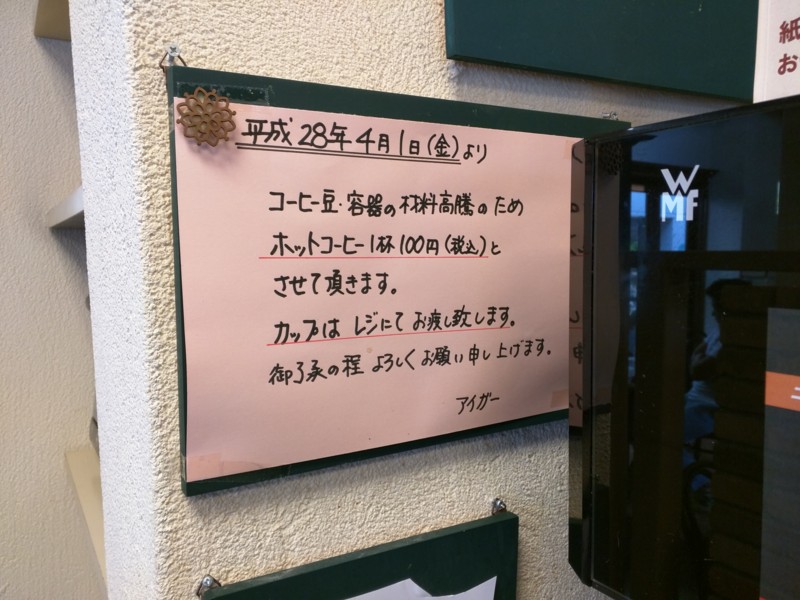 平成28年4月1日(金)より
コーヒー豆・容器の材料高騰のため
ホットコーヒー1杯100円(税込)と
させて頂きます。
カップは レジにて お渡し致します。
御了承の程 よろしくお願い申し上げます。
アイガー
WMF
紙
お